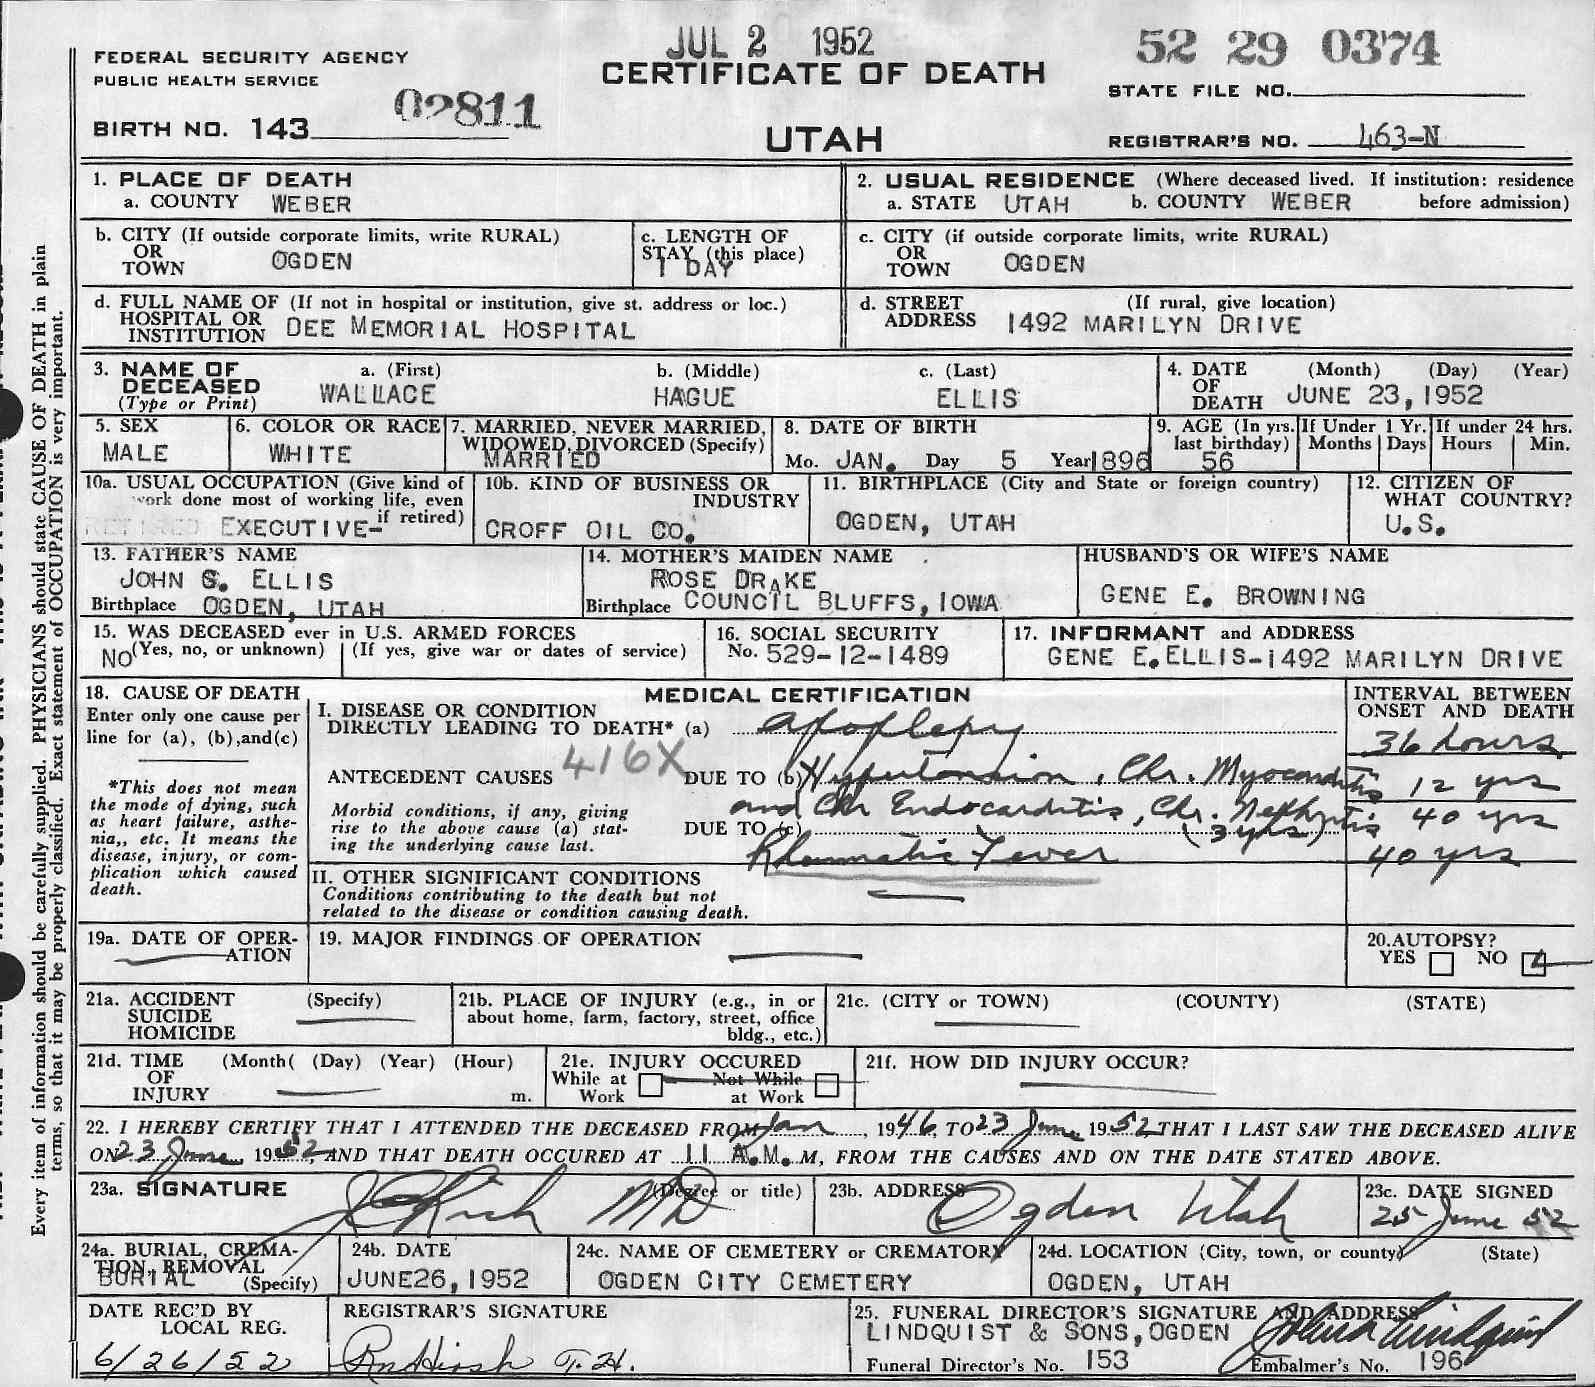 JUL 2 1952
52 29 0374
FEDERAL SECURITY AGENCY
PUBLIC HEALTH SERVICE
CERTIFICATE OF DEATH
STATE FILE NO.
02811
BIRTH NO. 143
UTAH
REGISTRAR'S NO. 463-N
Every item of information should be carefully supplied. PHYSICIANS should state CAUSE OF DEATH in plain
terms, so that it may be properly classified. Exact statement of OCCUPATION is very important.
1. PLACE OF DEATH
a. COUNTY WEBER
2. USUAL RESIDENCE (Where deceased lived. If institution: residence
a. STATE UTAH b. COUNTY WEBER before admission)
b. CITY (If outside corporate limits, write RURAL)
OR
TOWN OGDEN
c. LENGTH OF
STAY (this place)
1 DAY
c. CITY (if outside corporate limits, write RURAL)
OR
TOWN OGDEN
d. FULL NAME OF (If not in hospital or institution, give st. address or loc.)
HOSPITAL OR
INSTITUTION DEE MEMORIAL HOSPITAL
d. STREET (If rural, give location)
ADDRESS 1492 MARILYN DRIVE
3. NAME OF
DECEASED
(Type or Print)
a. (First)
WALLACE
b. (Middle)
HAGUE
c. (Last)
ELLIS
4. DATE (Month) (Day) (Year)
OF
DEATH JUNE 23, 1952
5. SEX
MALE
6. COLOR OR RACE
WHITE
7. MARRIED, NEVER MARRIED,
WIDOWED, DIVORCED (Specify)
MARRIED
8. DATE OF BIRTH
Mo. JAN. Day 5 Year 1896
9. AGE (In yrs.
last birthday)
56
If Under 1 Yr.
Months Days
If under 24 hrs.
Hours Min.
10a. USUAL OCCUPATION (Give kind of
work done most of working life, even
if retired)
RETIRED EXECUTIVE-
10b. KIND OF BUSINESS OR
INDUSTRY
CROFF OIL CO.
11. BIRTHPLACE (City and State or foreign country)
OGDEN, UTAH
12. CITIZEN OF
WHAT COUNTRY?
U.S.
13. FATHER'S NAME
JOHN S. ELLIS
Birthplace OGDEN, UTAH
14. MOTHER'S MAIDEN NAME
ROSE DRAKE
Birthplace COUNCIL BLUFFS, IOWA
HUSBAND'S OR WIFE'S NAME
GENE E. BROWNING
15. WAS DECEASED ever in U.S. ARMED FORCES
NO (Yes, no, or unknown) (If yes, give war or dates of service)
16. SOCIAL SECURITY
No. 529-12-1489
17. INFORMANT and ADDRESS
GENE E. ELLIS-1492 MARILYN DRIVE
18. CAUSE OF DEATH
Enter only one cause per
line for (a), (b),and(c)
*This does not mean
the mode of dying, such
as heart failure, asthe-
nia,, etc. It means the
disease, injury, or com-
plication which caused
death.
MEDICAL CERTIFICATION
I. DISEASE OR CONDITION
DIRECTLY LEADING TO DEATH* (a) Apoplexy
416X
ANTECEDENT CAUSES DUE TO (b) Hypertension, Chr. Myocarditis
and Chr Endocarditis, Chr. Nephritis
Morbid conditions, if any, giving
rise to the above cause (a) stat-
ing the underlying cause last.
DUE TO (c) (3 yrs)
Rheumatic Fever
II. OTHER SIGNIFICANT CONDITIONS
Conditions contributing to the death but not
related to the disease or condition causing death.
INTERVAL BETWEEN
ONSET AND DEATH
36 hours
12 yrs
40 yrs
40 yrs
19a. DATE OF OPER-
ATION
19. MAJOR FINDINGS OF OPERATION
20.AUTOPSY?
YES NO
21a. ACCIDENT (Specify)
SUICIDE
HOMICIDE
21b. PLACE OF INJURY (e.g., in or
about home, farm, factory, street, office
bldg., etc.)
21c. (CITY or TOWN) (COUNTY) (STATE)
21d. TIME (Month( (Day) (Year) (Hour)
OF
INJURY m.
21e. INJURY OCCURED
While at Not While
Work at Work
21f. HOW DID INJURY OCCUR?
22. I HEREBY CERTIFY THAT I ATTENDED THE DECEASED FROM Jan, 1946, TO 23 June, 1952, THAT I LAST SAW THE DECEASED ALIVE
ON 23 June, 1952, AND THAT DEATH OCCURED AT 11 A.M. M, FROM THE CAUSES AND ON THE DATE STATED ABOVE.
23a. SIGNATURE (Degree or title)
Rich MD
23b. ADDRESS
Ogden Utah
23c. DATE SIGNED
25 June 52
24a. BURIAL, CREMA-
TION, REMOVAL
BURIAL (Specify)
24b. DATE
JUNE26, 1952
24c. NAME OF CEMETERY or CREMATORY
OGDEN CITY CEMETERY
24d. LOCATION (City, town, or county) (State)
OGDEN, UTAH
DATE REC'D BY
LOCAL REG.
6/26/52
REGISTRAR'S SIGNATURE
25. FUNERAL DIRECTOR'S SIGNATURE AND ADDRESS
LINDQUIST & SONS, OGDEN
Funeral Director's No. 153
Embalmer's No. 196